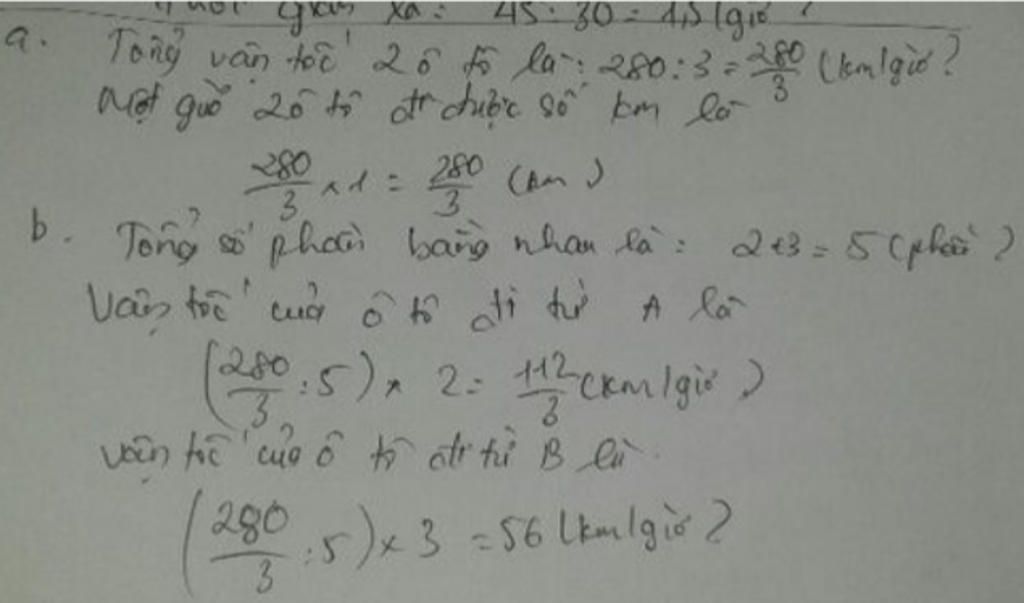 gian xa : 45 : 30 = 1,5 (giờ)
a. Tổng vận tốc 2 ô tô là : 280 : 3 = 280/3 (km/giờ)
Một giờ 2 ô tô đi được số km là
280/3 x 1 = 280/3 (km)
b. Tổng số phần bằng nhau là : 2+3 = 5 (phần)
Vận tốc của ô tô đi từ A là
(280/3 : 5) x 2 = 112/3 (km/giờ)
vận tốc của ô tô đi từ B là
(280/3 : 5) x 3 = 56 (km/giờ)